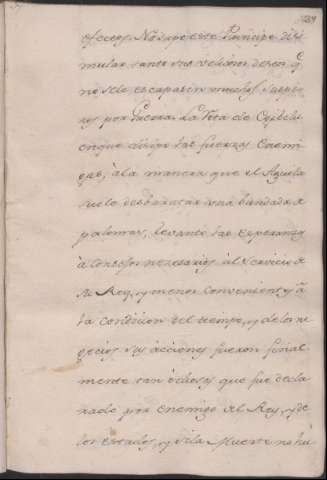 efectos. No supo este Principe disi
mular tanto sus
no se le escapasen muchos
por la Tera de
en que disipo las fuerzas Enemi
gas, à la manera que el Aguila
suele desbaratar una bandada de
palomas, levantò las Esperanzas
à necesarios al Servicio de
Rey, y menos convenientes à
la condicion del tiempo, y de los ne
gocios sus acciones fueron final
mente tan odiosas que fue decla
rado por enemigo del Rey, y de
los estados, y si la Muerte no hu